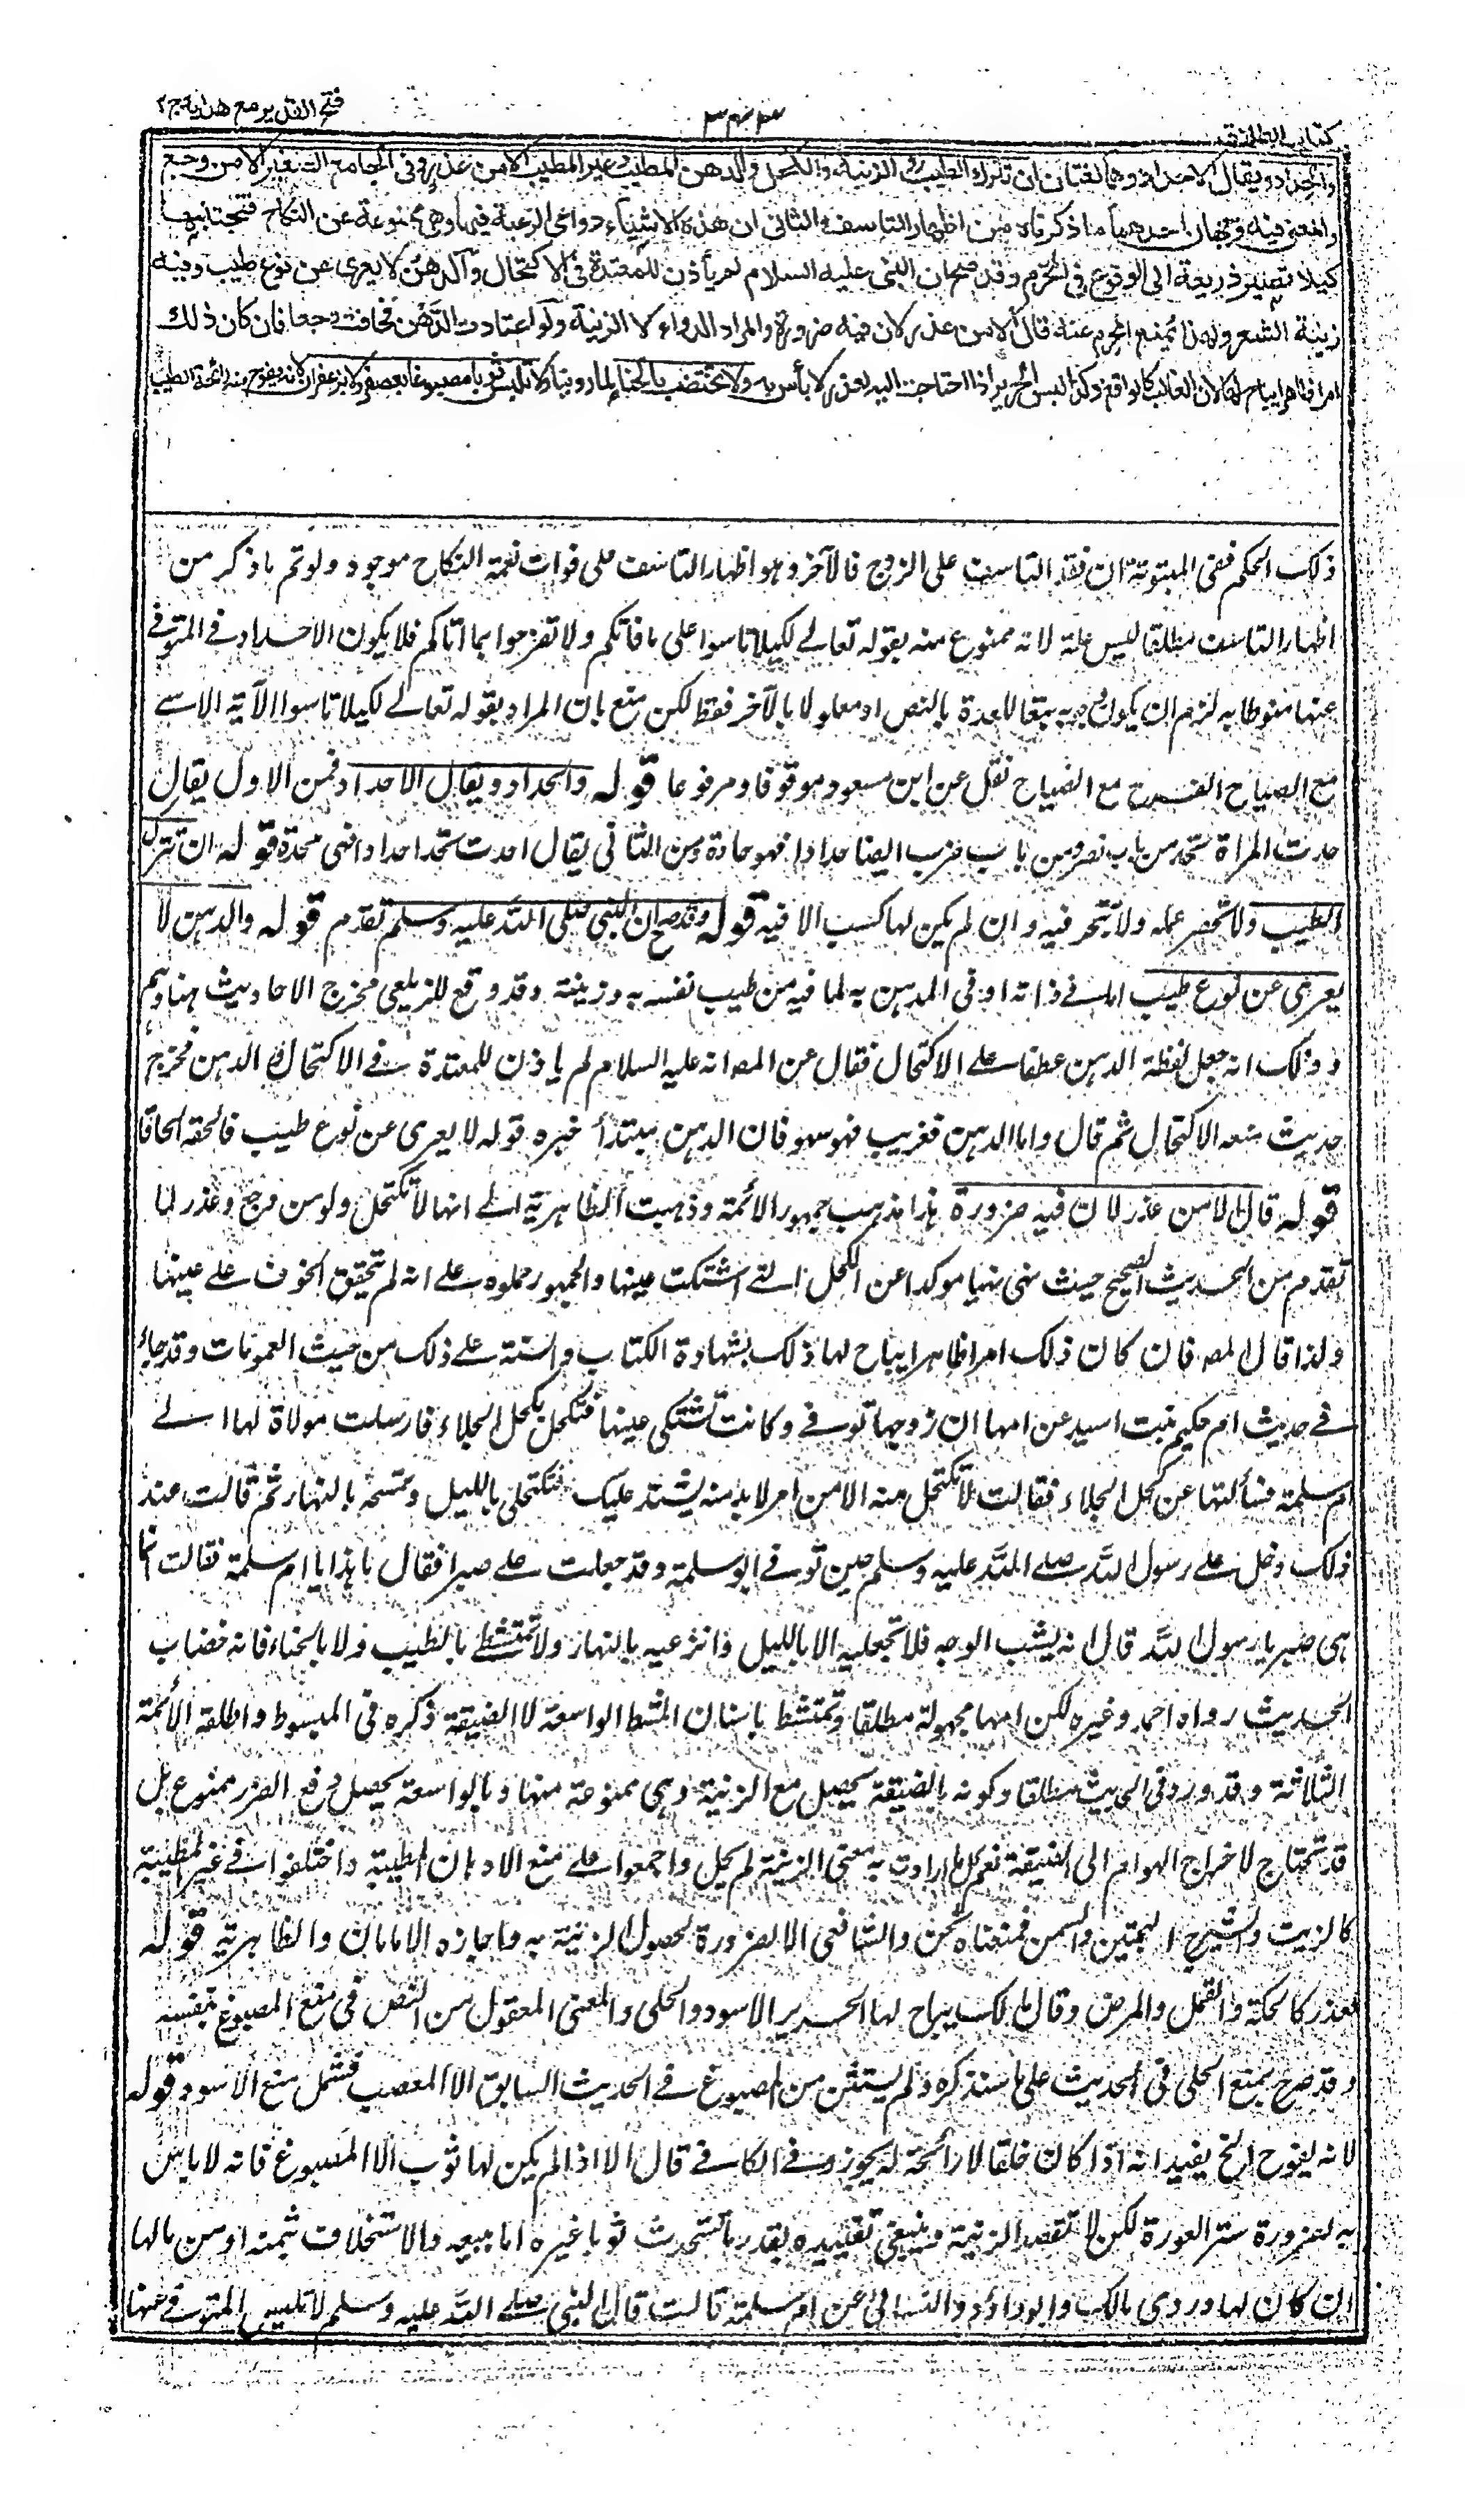 كتاب الطلاق
فتح القدير مع هداية ج٢
والحداد ويقال الاحداد وهما لغتان ان تترك الطيب والزينة والكحل والدهن المطيب وغير المطيب الا من عذر وفي الجامع الصغير الا من وجع
والمعنى فيه وجهان احدهما ما ذكرناه من اظهار التاسف والثاني ان هذه الاشياء دواعي الرغبة فيها وهي ممنوعة عن النكاح فتجتنبها
كيلا تصير ذريعة الى الوقوع في المحرم وقد صح ان النبي عليه السلام لم يأذن للمعتدة في الاكتحال والدهن لا يعرى عن نوع طيب وفيه
زينة الشعر ولهذا يمنع المحرم عنه قال الا من عذر لان فيه ضرورة والمراد الدواء لا الزينة ولو اعتادت الدهن فخافت وجعا فان كان ذلك
امرا ظاهرا يباح لها لان الغالب كالواقع وكذا لبس الحرير اذا احتاجت اليه لعذر لا بأس به ولا تختضب بالحناء لما روينا ولا تلبس ثوبا مصبوغا بعصفر ولا بزعفران لانه يفوح منه رائحة الطيب
ذلك الحكم ففي المبتوتة ان فقد التاسف على الزوج فالآخر وهو اظهار التاسف على فوات نعمة النكاح موجود ولو تم ما ذكر من
اظهار التاسف مطلقا ليس علة لانه ممنوع منه بقوله تعالى لكيلا تاسوا على ما فاتكم ولا تفرحوا بما اتاكم فلا يكون الاحداد في المتوفى
عنها منوطا به لزم ان يكون وجوبه تبعا للعدة بالنص او معلولا بالآخر فقط لكن منع بان المراد بقوله تعالى لكيلا تاسوا الآية الاسى
مع الصياح الفرح مع الصياح نقل عن ابن مسعود موقوفا ومرفوعا قوله والحداد ويقال الاحداد فمن الاول يقال
حدت المراة تحد من باب نصر ومن باب ضرب ايضا حدادا فهو حادة ومن الثاني يقال احدت تحد احدادا فهي محدة قوله ان تترك
الطيب ولا تحضر عمله ولا تتجر فيه وان لم يكن لها كسب الا فيه قوله وقد صح ان النبي صلى الله عليه وسلم تقدم قوله والدهن لا
يعرى عن نوع طيب اما في ذاته او في المدهن به لما فيه من طيب نفسه به وزينته وقد وقع للزيلعي مخرج الاحاديث هنا وهم
و ذلك انه جعل لفظة الدهن عطفا على الاكتحال فقال عن المصـ انه عليه السلام لم ياذن للمعتدة في الاكتحال والدهن فخرج
حديث منعه الاكتحال ثم قال واما الدهن فغريب فهو سهو فان الدهن مبتدأ خبره قوله لا يعرى عن نوع طيب فالحقه الحاقا
قوله قال الا من عذر لان فيه ضرورة هذا مذهب جمهور الائمة وذهبت الظاهرية الى انها لا تكتحل ولو من وجع وعذر لما
تقدم من الحديث الصحيح حيث نهى نهيا موكدا عن الكحل التي اشتكت عينها والجمهور حملوه على انه لم يتحقق الخوف على عينها
ولذا قال المصـ فان كان ذلك امرا ظاهرا يباح لها ذلك بشهادة الكتاب والسنة على ذلك من حيث العمومات وقد جاء
في حديث ام حكيم بنت اسيد عن امها ان زوجها توفي وكانت تشتكي عينها فتكتحل بكحل الجلاء فارسلت مولاة لها الى
ام سلمة فسألتها عن كحل الجلاء فقالت لا تكتحل منه الا من امر لا بد منه يشتد عليك فتكتحلي بالليل وتمسحه بالنهار ثم قالت عند
ذلك دخل على رسول الله صلى الله عليه وسلم حين توفي ابو سلمة وقد جعلت على صبرا فقال ما هذا يا ام سلمة فقالت انما
هي صبر يا رسول الله قال انه يشب الوجه فلا تجعليه الا بالليل وانزعيه بالنهار ولا تمتشطي بالطيب ولا بالحناء فانه خضاب
الحديث رواه احمد وغيره لكن امها مجهولة مطلقا وتمتشط باسنان المشط الواسعة لا الضيقة ذكره في المبسوط واطلقه الأئمة
الثلاثة وقد ورد في الحديث مطلقا وكونه بالضيقة يحصل مع الزينة وهي ممنوعة منها وبالواسعة يحصل دفع الضرر ممنوع بل
قد تحتاج لاخراج الهوام الى الضيقة نعم كل ما ارادت به معنى الزينة لم يحل واجمعوا على منع الادهان المطيبة واختلفوا في غير المطيبة
كالزيت والشيرج البحتين والسمن فمنعناه نحن والشافعي الا لضرورة لحصول الزينة به واجازه الامامان والظاهرية قوله
لعذر كالحكة والقمل والمرض وقال مالك يباح لها الحرير الاسود والحلى والمعنى المعقول من النص في منع المصبوغ ينفيه
وقد صرح بمنع الحلى في الحديث على ما سنذكره ولم يستثن من المصبوغ في الحديث السابق الا العصب فشمل منع الاسود قوله
لانه يفوح الخ يفيد انه اذا كان خلقا لا رائحة له يجوز وفي الكافي قال الا اذا لم يكن لها ثوب الا المصبوغ فانه لا باس
به لضرورة ستر العورة لكن لا تقصد الزينة وينبغي تقييده بقدر ما تستحدث ثوبا غيره اما ببيعه والاستخلاف بثمنه او من مالها
ان كان لها وروى مالك وابو داؤد والنسائي عن ام سلمة قالت قال النبي صلى الله عليه وسلم لا تلبس المتوفى عنها